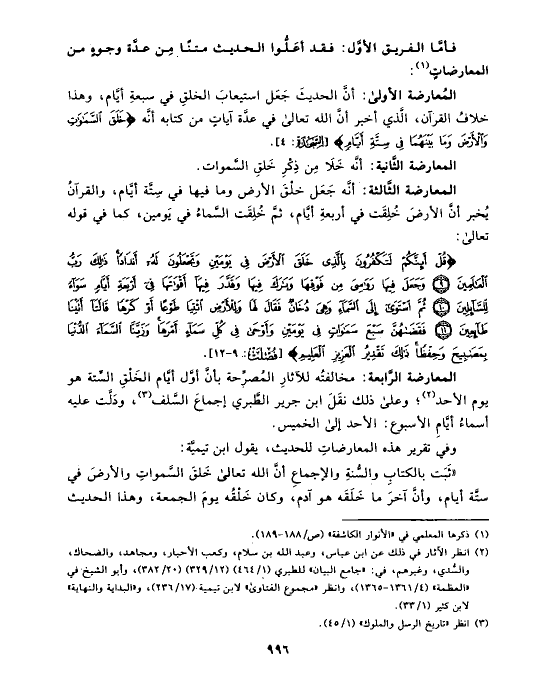 فأمَّا الفريق الأوَّل: فقد أعلُّوا الحديث متنًا مِن عدَّة وجوهٍ من
المعارضاتِ(١):
المُعارضة الأولىٰ: أنَّ الحديثَ جَعَل استيعابَ الخلقِ في سبعةِ أيَّام، وهذا
خلافُ القرآن، الَّذي أخبر أنَّ الله تعالىٰ في عدَّة آياتٍ من كتابه أنَّه ﴿خَلَقَ ٱلسَّمَٰوَٰتِ
وَٱلْأَرْضَ وَمَا بَيْنَهُمَا فِى سِتَّةِ أَيَّامٍ﴾ [السَّجْدَة: ٤].
المعارضة الثَّانية: أنَّه خَلَا مِن ذِكْرِ خَلقِ السَّموات.
المعارضة الثَّالثة: أنَّه جَعَل خلْقَ الأرض وما فيها في سِتَّة أيَّام، والقرآنُ
يُخبر أنَّ الأرضَ خُلِقَت في أربعةِ أيَّام، ثمَّ خُلِقَت السَّماءُ في يَومين، كما في قوله
تعالىٰ:
﴿قُلْ أَئِنَّكُمْ لَتَكْفُرُونَ بِٱلَّذِى خَلَقَ ٱلْأَرْضَ فِى يَوْمَيْنِ وَتَجْعَلُونَ لَهُۥٓ أَندَادًا ذَٰلِكَ رَبُّ
ٱلْعَٰلَمِينَ ۝٩ وَجَعَلَ فِيهَا رَوَٰسِىَ مِن فَوْقِهَا وَبَٰرَكَ فِيهَا وَقَدَّرَ فِيهَآ أَقْوَٰتَهَا فِىٓ أَرْبَعَةِ أَيَّامٍ سَوَآءً
لِّلسَّآئِلِينَ ۝١٠ ثُمَّ ٱسْتَوَىٰٓ إِلَى ٱلسَّمَآءِ وَهِىَ دُخَانٌ فَقَالَ لَهَا وَلِلْأَرْضِ ٱئْتِيَا طَوْعًا أَوْ كَرْهًا قَالَتَآ أَتَيْنَا
طَآئِعِينَ ۝١١ فَقَضَىٰهُنَّ سَبْعَ سَمَٰوَاتٍ فِى يَوْمَيْنِ وَأَوْحَىٰ فِى كُلِّ سَمَآءٍ أَمْرَهَا وَزَيَّنَّا ٱلسَّمَآءَ ٱلدُّنْيَا
بِمَصَٰبِيحَ وَحِفْظًا ذَٰلِكَ تَقْدِيرُ ٱلْعَزِيزِ ٱلْعَلِيمِ﴾ [فُصِّلَتْ: ٩-١٢].
المعارضة الرَّابعة: مخالفتُه للآثارِ المُصرِّحة بأنَّ أوَّل أيَّام الخَلْقِ السِّتة هو
يوم الأحد(٢)؛ وعلىٰ ذلك نقَلَ ابن جرير الطَّبري إجماعَ السَّلف(٣)، ودَلَّت عليه
أسماءُ أيَّامِ الأسبوع: الأحد إلىٰ الخميس.
وفي تقرير هذه المعارضاتِ للحديث، يقول ابن تيميَّة:
«ثَبَت بالكتابِ والسُّنةِ والإجماعِ أنَّ الله تعالىٰ خَلقَ السَّمواتِ والأرضَ في
ستَّة أيام، وأنَّ آخرَ ما خَلَقَه هو آدم، وكان خَلْقُه يومَ الجمعة، وهذا الحديث
(١) ذكرها المعلمي في «الأنوار الكاشفة» (ص/١٨٨-١٨٩).
(٢) انظر الآثار في ذلك عن ابن عباس، وعبد الله بن سلام، وكعب الأحبار، ومجاهد، والضحاك،
والسُّدي، وغيرهم، في: «جامع البيان» للطبري (١/ ٤٦٤) (١٢/ ٣٢٩) (٢٠/ ٣٨٢)، وأبو الشيخ في
«العظمة» (٤/ ١٣٦١-١٣٦٥)، وانظر «مجموع الفتاوىٰ» لابن تيمية (١٧/ ٢٣٦)، «والبداية والنهاية»
لابن كثير (١/ ٣٣).
(٣) انظر «تاريخ الرسل والملوك» (١/ ٤٥).
٩٩٦